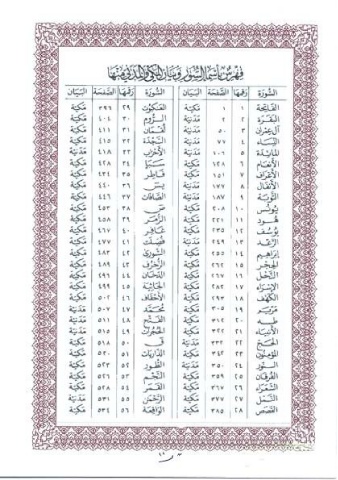 فِهْرِسٌ بِأَسْمَاءِ السُّوَرِ وَبَيَانِ المَكِّيِّ وَالمَدَنِيِّ مِنْهَا
السُّورَة رقمها الصَّفحَة البَيَان
الفَاتِحَة ١ ١ مَكيّة
البَقَرَة ٢ ٢ مَدَنيّة
آل عِمرَان ٣ ٥٠ مَدَنيّة
النِّسَاء ٤ ٧٧ مَدَنيّة
المَائدة ٥ ١٠٦ مَدَنيّة
الأنعَام ٦ ١٢٨ مَكيّة
الأعرَاف ٧ ١٥١ مَكيّة
الأنفَال ٨ ١٧٧ مَدَنيّة
التوبَة ٩ ١٨٧ مَدَنيّة
يُونس ١٠ ٢٠٨ مَكيّة
هُود ١١ ٢٢١ مَكيّة
يُوسُف ١٢ ٢٣٥ مَكيّة
الرّعد ١٣ ٢٤٩ مَدَنيّة
إبراهِيم ١٤ ٢٥٥ مَكيّة
الحِجر ١٥ ٢٦٢ مَكيّة
النّحل ١٦ ٢٦٧ مَكيّة
الإسرَاء ١٧ ٢٨٢ مَكيّة
الكهف ١٨ ٢٩٣ مَكيّة
مَريَم ١٩ ٣٠٥ مَكيّة
طه ٢٠ ٣١٢ مَكيّة
الأنبيَاء ٢١ ٣٢٢ مَكيّة
الحَج ٢٢ ٣٣٢ مَدَنيّة
المؤمنُون ٢٣ ٣٤٢ مَكيّة
النّور ٢٤ ٣٥٠ مَدَنيّة
الفُرقان ٢٥ ٣٥٩ مَكيّة
الشُّعَرَاء ٢٦ ٣٦٧ مَكيّة
النَّمل ٢٧ ٣٧٧ مَكيّة
القَصَص ٢٨ ٣٨٥ مَكيّة
السُّورَة رقمها الصَّفحَة البَيَان
العَنكبوت ٢٩ ٣٩٦ مَكيّة
الرُّوم ٣٠ ٤٠٤ مَكيّة
لُقمَان ٣١ ٤١١ مَكيّة
السَّجدَة ٣٢ ٤١٥ مَكيّة
الأحزَاب ٣٣ ٤١٨ مَدَنيّة
سَبَأ ٣٤ ٤٢٨ مَكيّة
فَاطِر ٣٥ ٤٣٤ مَكيّة
يسٓ ٣٦ ٤٤٠ مَكيّة
الصَّافات ٣٧ ٤٤٦ مَكيّة
صٓ ٣٨ ٤٥٣ مَكيّة
الزُّمَر ٣٩ ٤٥٨ مَكيّة
غَافِر ٤٠ ٤٦٧ مَكيّة
فُصِّلَت ٤١ ٤٧٧ مَكيّة
الشُّورَى ٤٢ ٤٨٣ مَكيّة
الزّخرُف ٤٣ ٤٨٩ مَكيّة
الدّخَان ٤٤ ٤٩٦ مَكيّة
الجَاثية ٤٥ ٤٩٩ مَكيّة
الأحقاف ٤٦ ٥٠٢ مَكيّة
محُمَّد ٤٧ ٥٠٧ مَدَنيّة
الفَتْح ٤٨ ٥١١ مَدَنيّة
الحُجرَات ٤٩ ٥١٥ مَدَنيّة
قٓ ٥٠ ٥١٨ مَكيّة
الذّاريَات ٥١ ٥٢٠ مَكيّة
الطُّور ٥٢ ٥٢٣ مَكيّة
النّجْم ٥٣ ٥٢٦ مَكيّة
القَمَر ٥٤ ٥٢٨ مَكيّة
الرَّحمٰن ٥٥ ٥٣١ مَدَنيّة
الوَاقِعَة ٥٦ ٥٣٤ مَكيّة